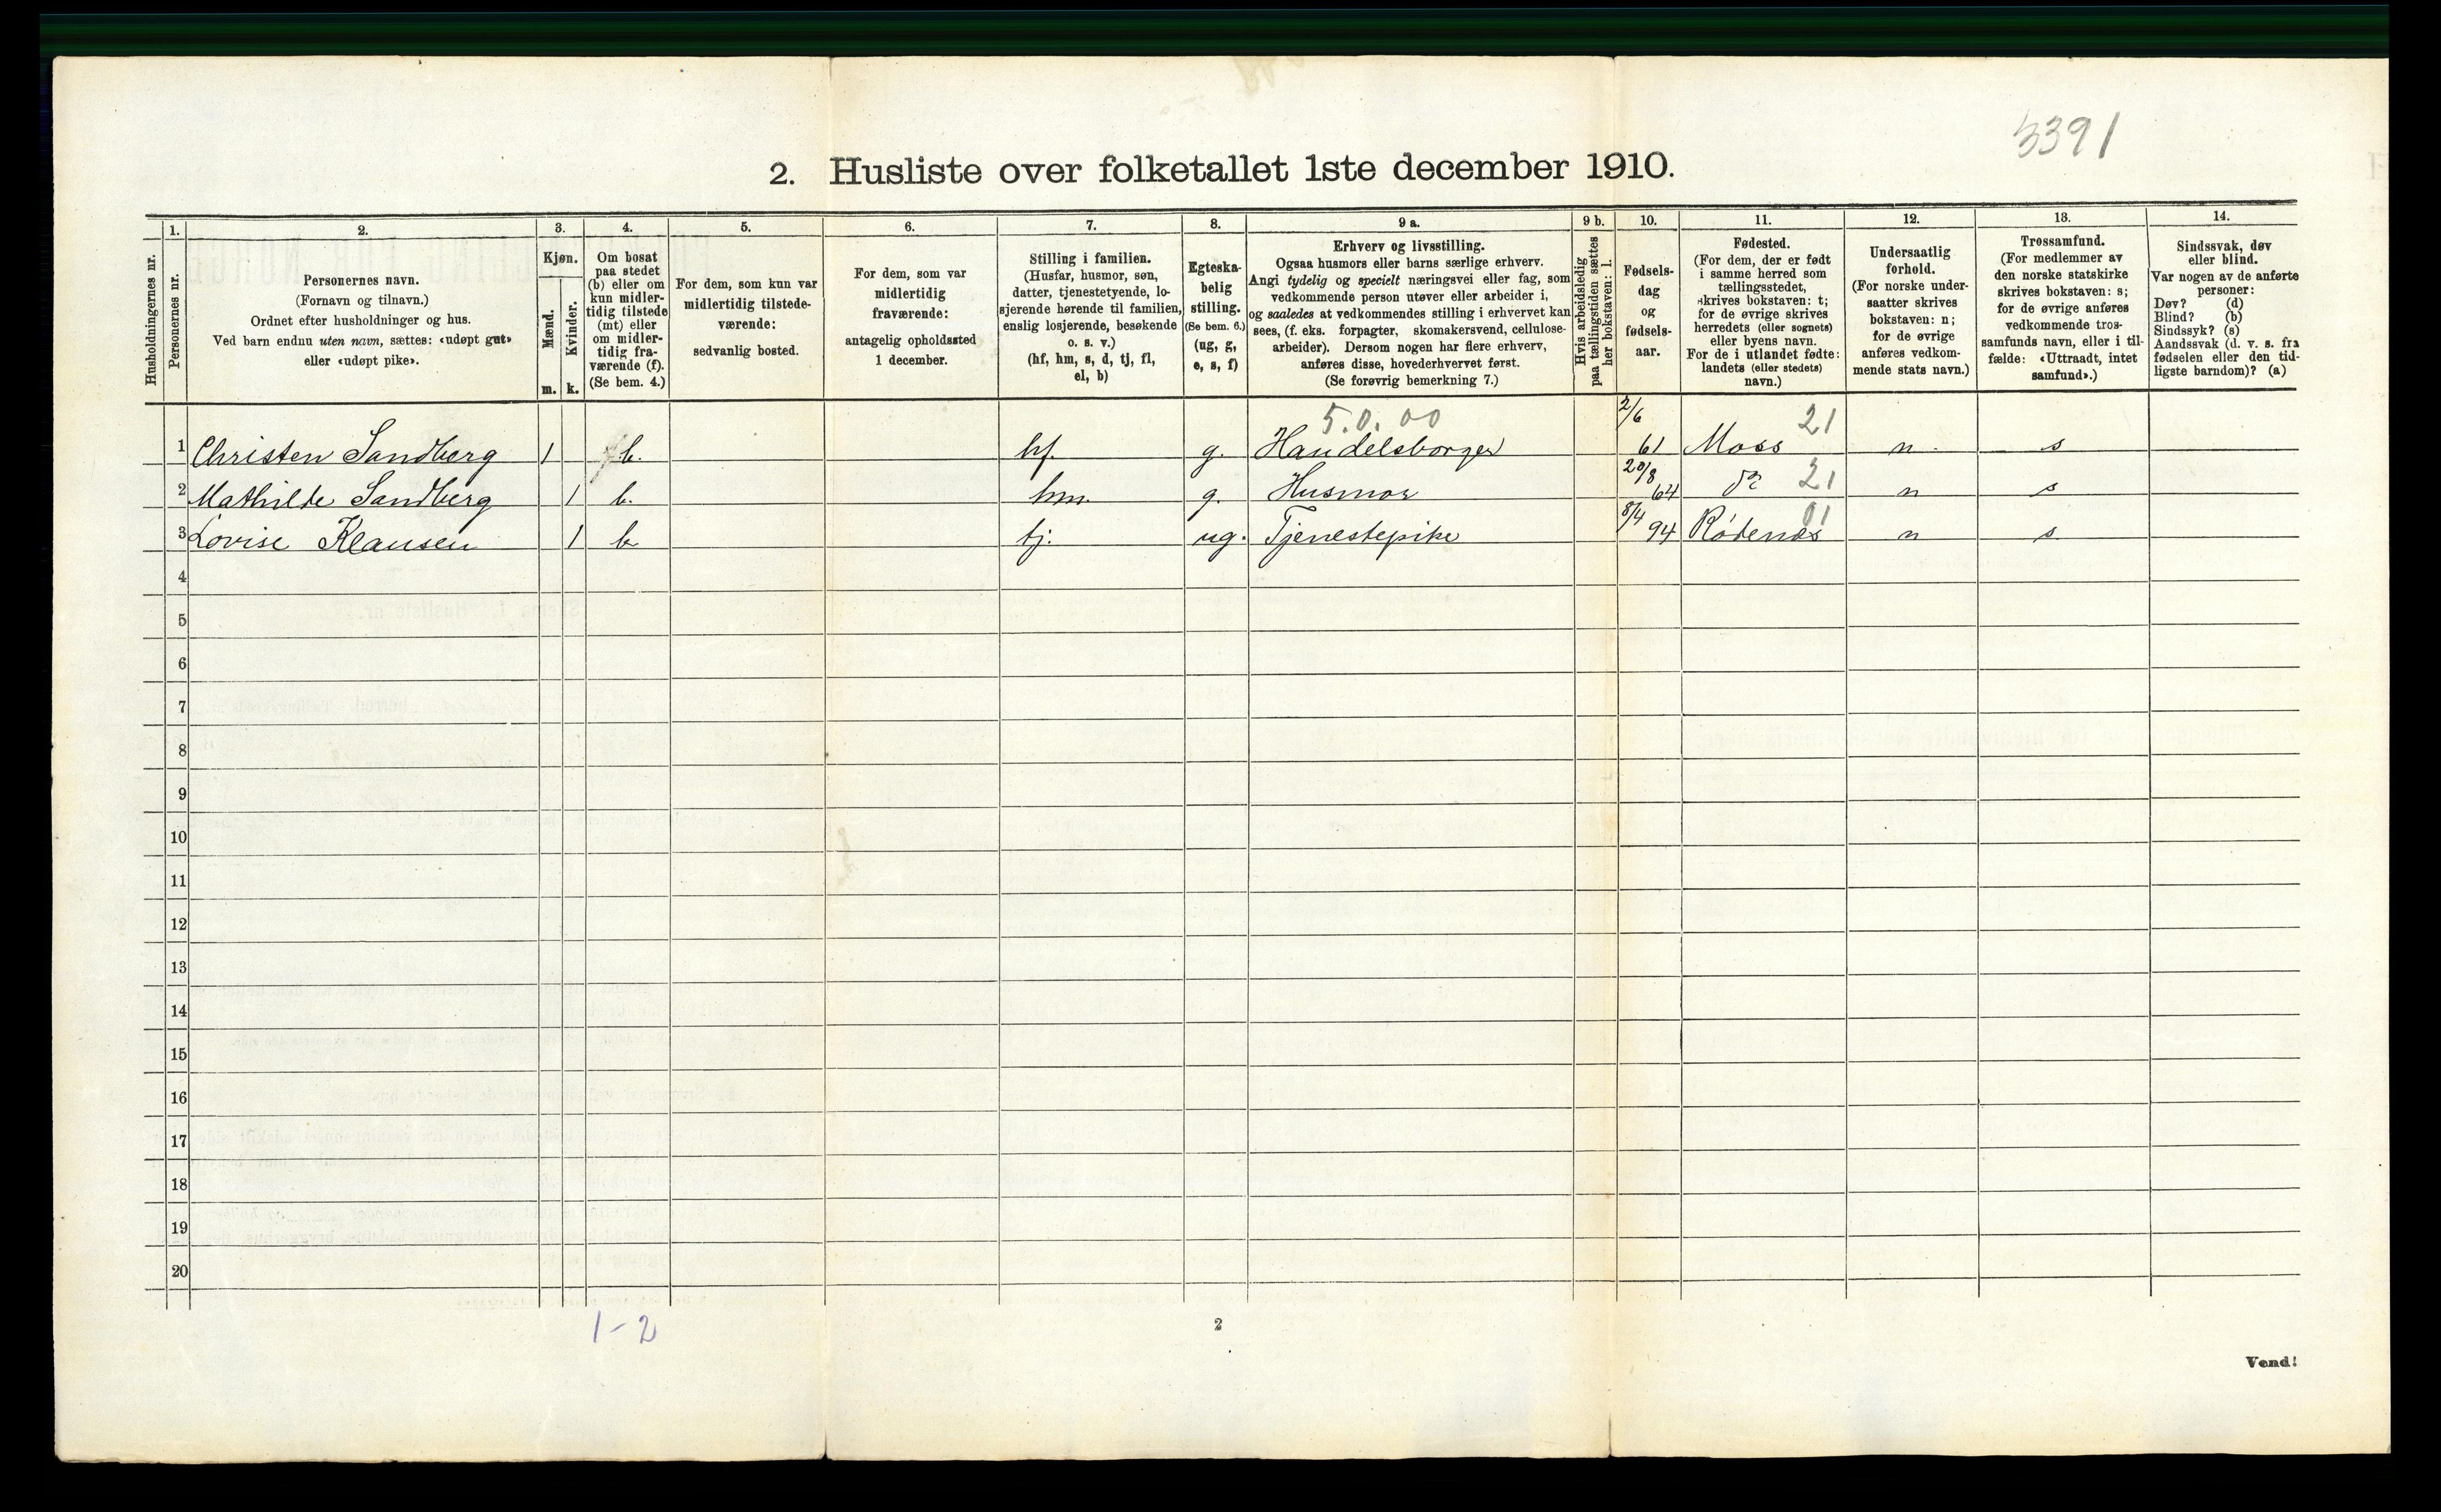 3391
2. Husliste over folketallet 1ste december 1910.
Husholdningernes nr.
1.
Personernes nr.
2.
Personernes navn.
(Fornavn og tilnavn.)
Ordnet efter husholdninger og hus.
Ved barn endnu uten navn, sættes: «udøpt gut»
eller «udøpt pike».
3.
Kjøn.
Mænd.
Kvinder.
m. k.
4.
Om bosat
paa stedet
(b) eller om
kun midler-
tidig tilstede
(mt) eller
om midler-
tidig fra-
værende (f).
(Se bem. 4.)
5.
For dem, som kun var
midlertidig tilstede-
værende:
sedvanlig bosted.
6.
For dem, som var
midlertidig
fraværende:
antagelig opholdssted
1 december.
7.
Stilling i familien.
(Husfar, husmor, søn,
datter, tjenestetyende, lo-
sjerende hørende til familien,
enslig losjerende, besøkende
o. s. v.)
(hf, hm, s, d, tj, fl,
el, b)
8.
Egteska-
belig
stilling.
(Se bem. 6.)
(ug, g,
e, s, f)
9 a.
Erhverv og livsstilling.
Ogsaa husmors eller barns særlige erhverv.
Angi tydelig og specielt næringsvei eller fag, som
vedkommende person utøver eller arbeider i,
og saaledes at vedkommendes stilling i erhvervet kan
sees, (f. eks. forpagter, skomakersvend, cellulose-
arbeider). Dersom nogen har flere erhverv,
anføres disse, hovederhvervet først.
(Se forøvrig bemerkning 7.)
9 b.
Hvis arbeidsledig
paa tællingstiden sættes
her bokstaven: l.
10.
Fødsels-
dag
og
fødsels-
aar.
11.
Fødested.
(For dem, der er født
i samme herred som
tællingsstedet,
skrives bokstaven: t;
for de øvrige skrives
herredets (eller sognets)
eller byens navn.
For de i utlandet fødte:
landets (eller stedets)
navn.)
12.
Undersaatlig
forhold.
(For norske under-
saatter skrives
bokstaven: n;
for de øvrige
anføres vedkom-
mende stats navn.)
13.
Trossamfund.
(For medlemmer av
den norske statskirke
skrives bokstaven: s;
for de øvrige anføres
vedkommende tros-
samfunds navn, eller i til-
fælde: «Uttraadt, intet
samfund».)
14.
Sindssvak, døv
eller blind.
Var nogen av de anførte
personer:
Døv? (d)
Blind? (b)
Sindssyk? (s)
Aandssvak (d. v. s. fra
fødselen eller den tid-
ligste barndom)? (a)
5.0.00 2/6 21
1 Christen Sandberg 1 b. hf. g. Handelsborger 61 Moss n. s
2 Mathilde Sandberg 1 b. hm. g. Husmor 20/8 64 do 21 n s
3 Lovise Klausen 1 b tj. ug. Tjenestepike 8/4 94 Rødenæs 01 n s.
4
5
6
7
8
9
10
11
12
13
14
15
16
17
18
19
20
1-2
2
Vend!